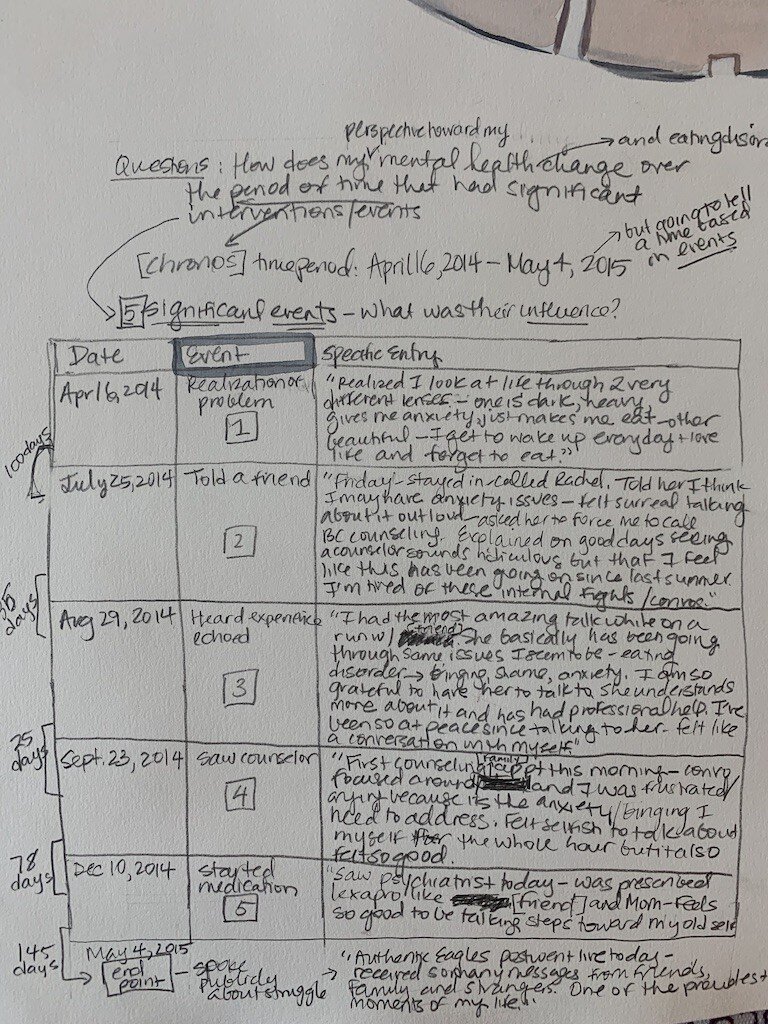 perspective toward my
and eating disor
Questions: How does my mental health change over
the period of time that had significant
interventions/events
but going to tell
a time based
on events
[chronos] time period: April 16, 2014 - May 4, 2015
5 significant events - what was their influence?
Date Event Specific Entry
April 6, 2014 Realization of problem 1
"Realized I look at life through 2 very
different lenses - one is dark, heavy,
gives me anxiety, just makes me eat - other
beautiful - I get to wake up everyday + love
life and forget to eat."
100 days
July 25, 2014 Told a friend 2
"Friday - stayed in - called Rachel. Told her I think
I may have anxiety issues - felt surreal talking
about it out loud - asked her to force me to call
BC counseling. Explained on good days seeing
a counselor sounds ridiculous but that I feel
like this has been going on since last summer.
I'm tired of these internal fights/convos."
35 days
Aug 29, 2014 Heard experience echoed 3
"I had the most amazing talk while on a
run w/ [friend] She basically has been going
through same issues I seem to be - eating
disorder → binging, shame, anxiety. I am so
grateful to have her to talk to, she understands
more about it and has had professional help. I've
been so at peace since talking to her - felt like
a conversation with myself."
25 days
Sept. 23, 2014 Saw counselor 4
"First counseling appt this morning - convo
focused around [family] and I was frustrated/
crying because its the anxiety/binging I
need to address. Felt selfish to talk about
myself for the whole hour but it also
felt so good.
78 days
Dec 10, 2014 started medication 5
"Saw psychiatrist today - was prescribed
lexapro like [friend] and Mom - Feels
so good to be talking steps toward my old self
145 days
May 4, 2015
end point - spoke publicly about struggle →
"Authentic Eagles post went live today -
received so many messages from friends,
family and strangers. One of the proudest
moments of my life."